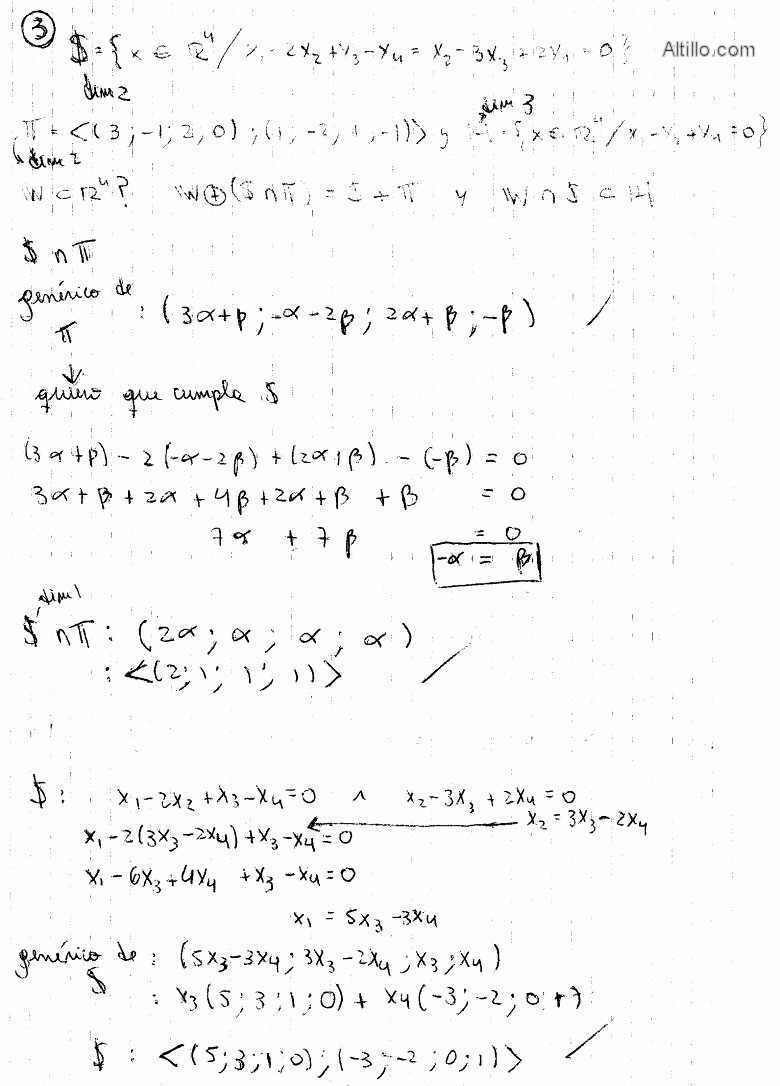 ③
Altillo.com
$ = { x ∈ ℝ⁴ / x₁ - 2x₂ + x₃ - x₄ = x₂ - 3x₃ + 2x₄ = 0 }
dim 2
dim 3
Π = <(3; -1; 2, 0); (1, -2, 1, -1)> y H = { x ∈ ℝ⁴ / x₁ - x₃ + x₄ = 0 }
dim 2
W ⊂ ℝ⁴? W ⊕ ($ ∩ Π) = S + Π y W ∩ S ⊂ H
$ ∩ Π
genérico de
Π : (3α+β; -α-2β; 2α+β; -β)
↓
quiero que cumpla $
(3α+β) - 2(-α-2β) + (2α+β) - (-β) = 0
3α + β + 2α + 4β + 2α + β + β = 0
7α + 7β = 0
-α = β
dim 1
$ ∩ Π : (2α; α; α; α)
: <(2; 1; 1; 1)>
$ : x₁ - 2x₂ + x₃ - x₄ = 0 ∧ x₂ - 3x₃ + 2x₄ = 0
x₂ = 3x₃ - 2x₄
x₁ - 2(3x₃ - 2x₄) + x₃ - x₄ = 0
x₁ - 6x₃ + 4x₄ + x₃ - x₄ = 0
x₁ = 5x₃ - 3x₄
genérico de $ : (5x₃ - 3x₄; 3x₃ - 2x₄; x₃; x₄)
: x₃(5; 3; 1; 0) + x₄(-3; -2; 0;
$ : <(5; 3; 1; 0); (-3; -2; 0; 1)>